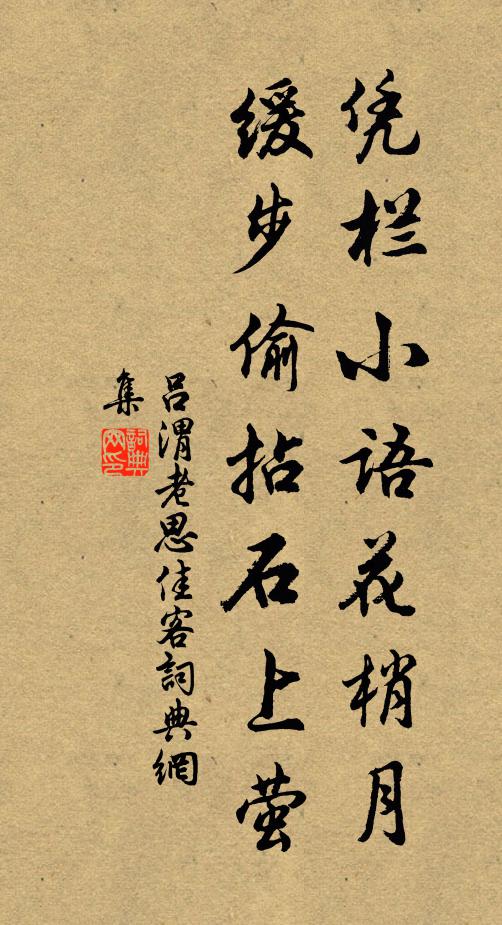 凭栏小语花梢月
缓步偷拈石上萤
吕渭老思佳客詞典網
集
詞典网印